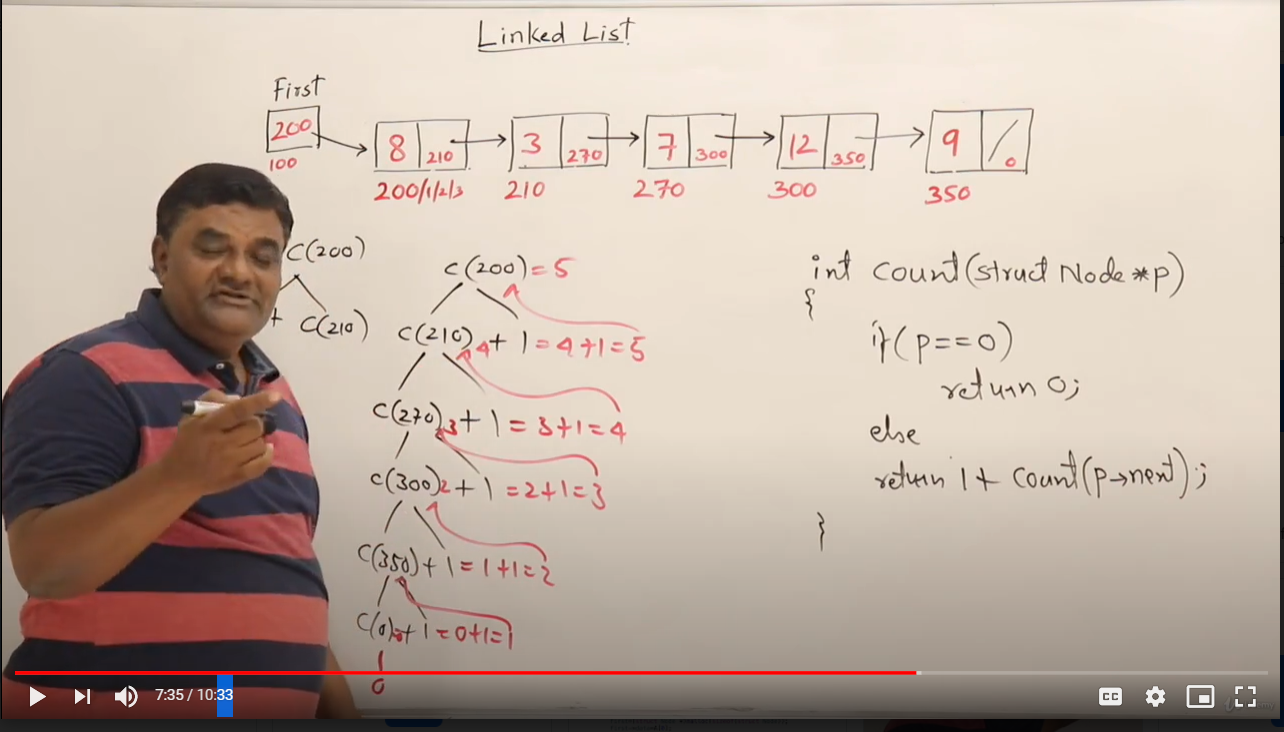 Linked List
First
200
100
8 210
200/1/2/3
3 270
210
7 300
270
12 350
300
9 / 0
350
C(200)
+ C(210)
C(200) = 5
C(210) 4 + 1 = 4+1=5
C(270) 3 + 1 = 3+1=4
C(300) 2 + 1 = 2+1=3
C(350) + 1 = 1+1=2
C(0) 0 + 1 = 0+1=1
0
int count(struct Node *p)
{
if(p==0)
return 0;
else
return 1+ count(p→next);
}
7:35 / 10:33
CC